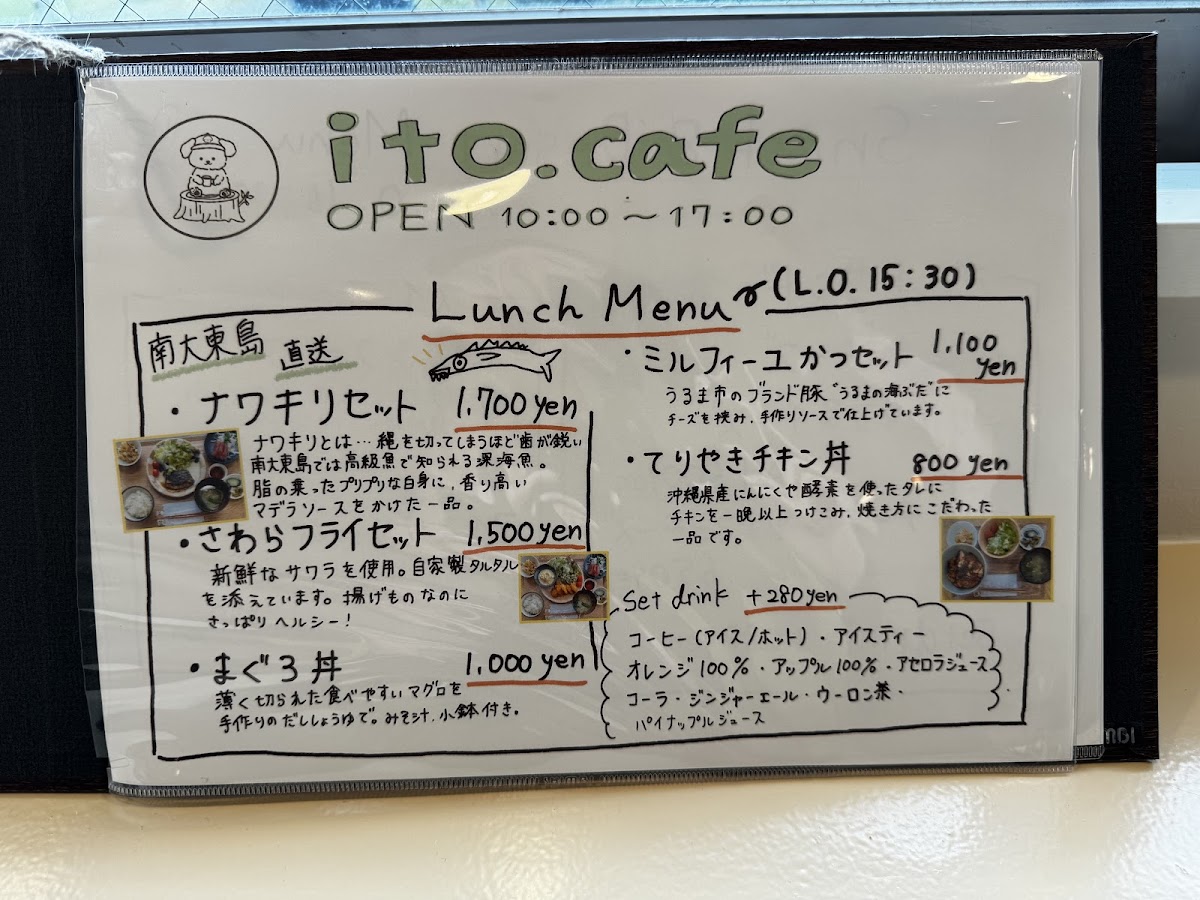 ito.cafe
OPEN 10:00〜17:00
Lunch Menu
(L.O. 15:30)
南大東島 直送
・ナワキリセット 1,700yen
ナワキリとは…縄を切ってしまうほど歯が鋭い
南大東島では高級魚で知られる深海魚。
脂の乗ったプリプリな白身に、香り高い
マデラソースをかけた一品。
・さわらフライセット 1,500yen
新鮮なサワラを使用。自家製タルタル
を添えています。揚げものなのに
さっぱりヘルシー!
・まぐろ丼 1,000yen
薄く切られた食べやすいマグロを
手作りのだししょうゆで。みそ汁、小鉢付き。
・ミルフィーユかつセット 1,100yen
うるま市のブランド豚"うるまの海ぶた"に
チーズを挟み、手作りソースで仕上げています。
・てりやきチキン丼 800yen
沖縄県産にんにくや酵素を使ったタレに
チキンを一晩以上つけこみ、焼き方にこだわった
一品です。
Set drink +280yen
コーヒー(アイス/ホット)・アイスティー
オレンジ100%・アップル100%・アセロラジュース
コーラ・ジンジャーエール・ウーロン茶・
パイナップルジュース